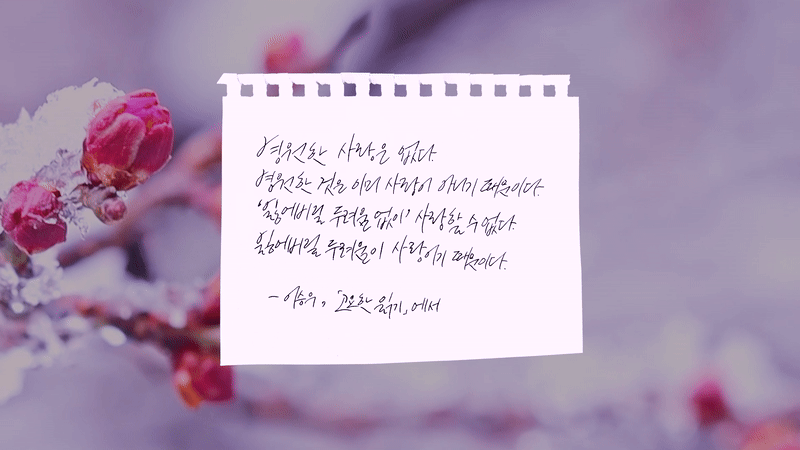 영원한 사랑은 없다.
영원한 것은 이미 사랑이 아니기 때문이다.
'잃어버릴 두려움 없이' 사랑할 수 없다.
잃어버릴 두려움이 사랑이기 때문이다.
- 이승우, 「고요한 읽기」에서